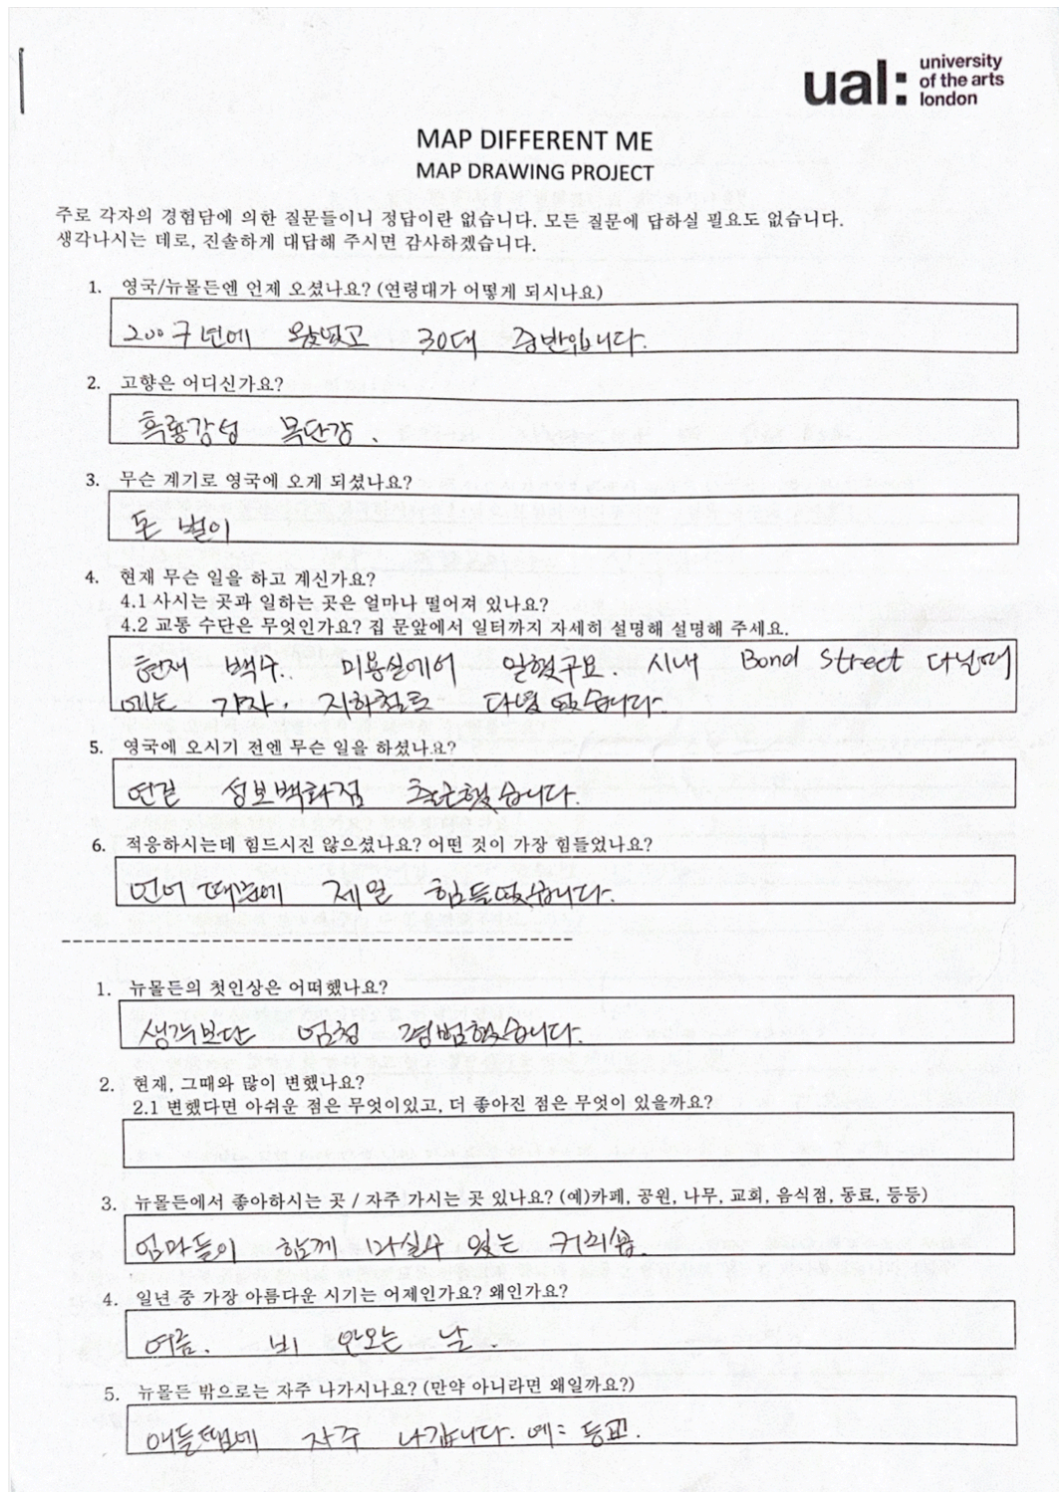 ual:
university
of the arts
london
MAP DIFFERENT ME
MAP DRAWING PROJECT
주로 각자의 경험담에 의한 질문들이니 정답이란 없습니다. 모든 질문에 답하실 필요도 없습니다.
생각나시는 데로, 진솔하게 대답해 주시면 감사하겠습니다.
1. 영국/뉴몰든엔 언제 오셨나요? (연령대가 어떻게 되시나요)
2007년에 왔었고 30대 중반입니다.
2. 고향은 어디신가요?
흑룡강성 목단강.
3. 무슨 계기로 영국에 오게 되셨나요?
돈 벌이
4. 현재 무슨 일을 하고 계신가요?
4.1 사시는 곳과 일하는 곳은 얼마나 떨어져 있나요?
4.2 교통 수단은 무엇인가요? 집 문앞에서 일터까지 자세히 설명해 설명해 주세요.
현재 백수.. 미용실에서 일했구요. 시내 Bond Street 다닐때
에는 기차, 지하철로 다녔었습니다.
5. 영국에 오시기 전엔 무슨 일을 하셨나요?
연길 성보백화점 출근했습니다.
6. 적응하시는데 힘드시진 않으셨나요? 어떤 것이 가장 힘들었나요?
언어 때문에 제일 힘들었습니다.
1. 뉴몰든의 첫인상은 어떠했나요?
생각보단 엄청 평범했습니다.
2. 현재, 그때와 많이 변했나요?
2.1 변했다면 아쉬운 점은 무엇이있고, 더 좋아진 점은 무엇이 있을까요?
3. 뉴몰든에서 좋아하시는 곳 / 자주 가시는 곳 있나요? (예)카페, 공원, 나무, 교회, 음식점, 동료, 등등)
엄마들이 함께 마실수 있는 커피숍.
4. 일년 중 가장 아름다운 시기는 어제인가요? 왜인가요?
여름. 비 안오는 날.
5. 뉴몰든 밖으로는 자주 나가시나요? (만약 아니라면 왜일까요?)
애들땜에 자주 나갑니다. 예: 등교.